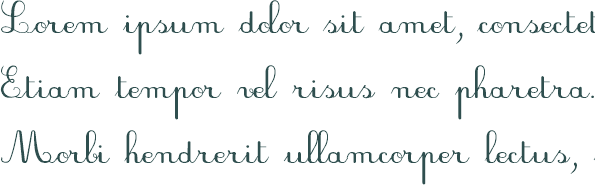 Lorem ipsum dolor sit amet, consectet
Etiam tempor vel risus nec pharetra.
Morbi hendrerit ullamcorper lectus,